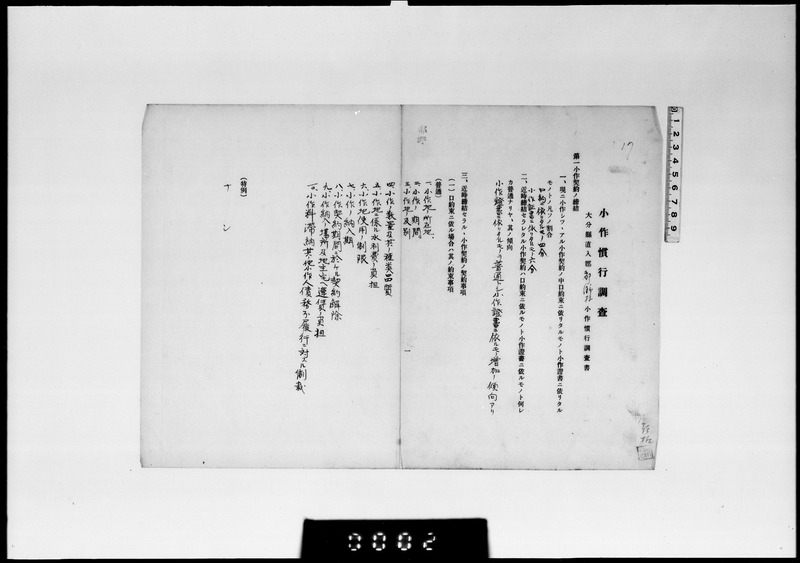 小作慣行調査
大分縣直入郡都野村小作慣行調査書
第一 小作契約ノ締結
一、現ニ小作シツヽアル小作契約ノ中口約束ニ依リタルモノト小作證書ニ依リタル
モノトノ凡ソノ割合
口約ニ依リタルモノ 四分
小作證書ニ依リタルモノ 六分
二、近時締結セラレタル小作契約ハ口約束ニ依ルモノト小作證書ニ依ルモノト何レ
カ普通ナリヤ、其ノ傾向
小作證書ニ依リタルモノヲ普通トシ小作證書ニ依ルモノ増加ノ傾向アリ
三、近時締結セラルヽ小作契約ノ契約事項
(一)口約束ニ依ル場合ハ其ノ約束事項
(普通)
一、小作地ノ所在地
二、小作ノ期間
三、小作地ノ反別
四、小作料ノ数量及其ノ種類品質
五、小作地ニ係ル水利費ノ負担
六、小作地使用ノ制限
七、小作料ノ納入期
八、小作契約期間ニ於ケル契約解除
九、小作料納入場所及地主宅ヘ運賃ノ負担
一〇、小作料滞納其他小作人債務不履行ニ対スル制裁
(特例)
ナシ
一
17
0002